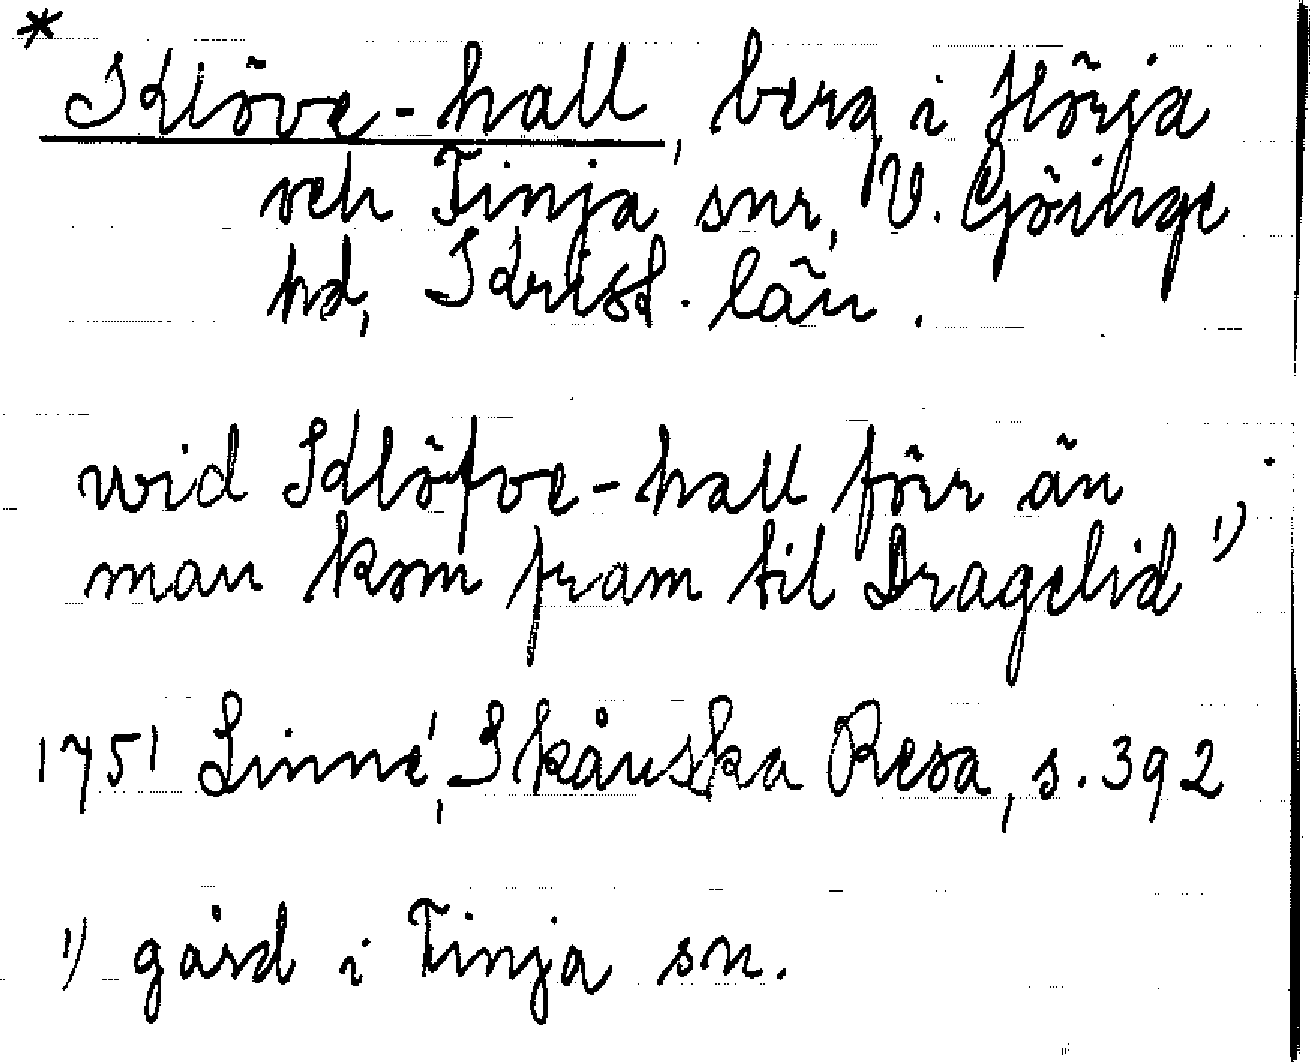 *
Klöve-hall, berg i Hörja
och Finja snr, V. Göinge
hd, Krist. län.
wid Klöfve-hall förr än
man kom fram til Dragelid 1)
1751 Linné, Skånska Resa, s. 392
1) gård i Finja sn.